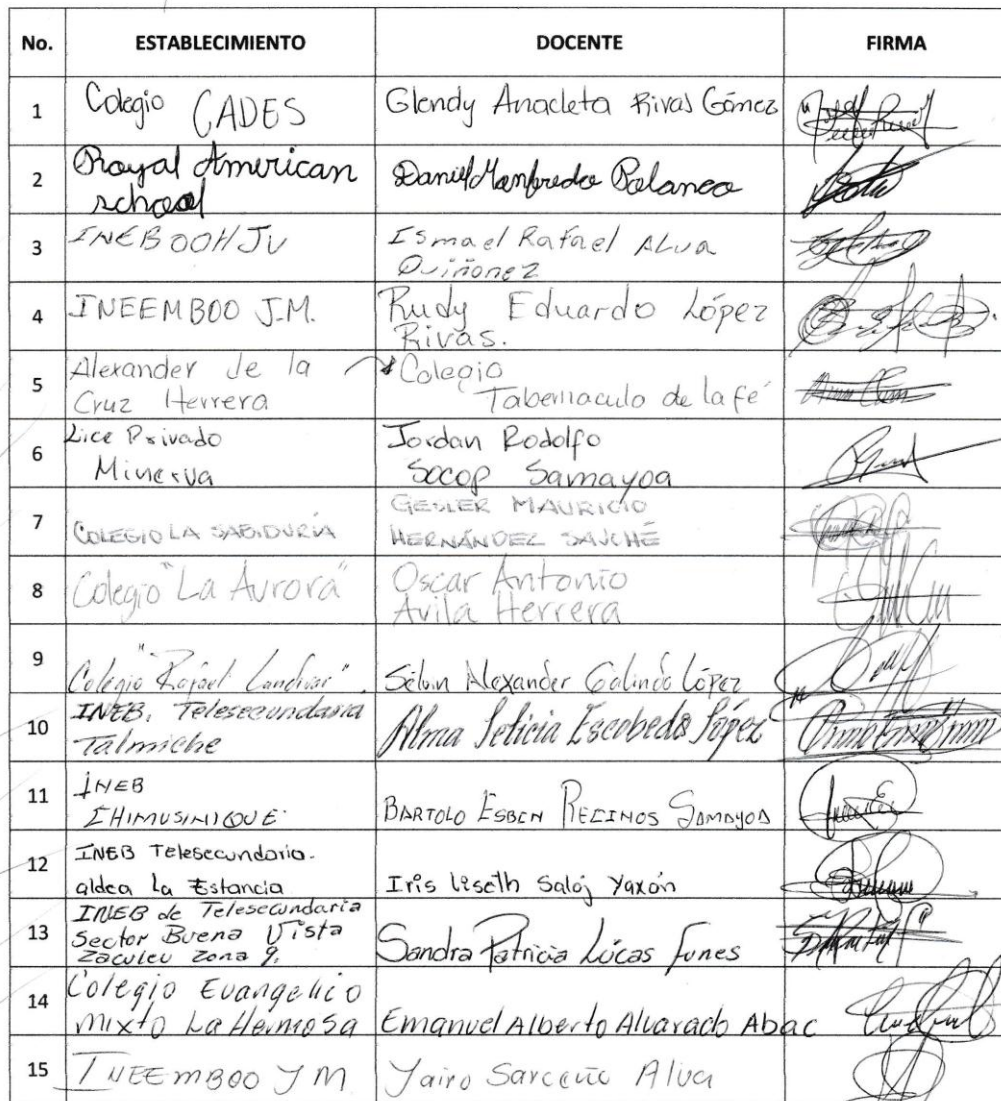 No. ESTABLECIMIENTO DOCENTE FIRMA
1 Colegio CADES Glendy Anacleta Rivas Gómez
2 Royal American school Daniel Manfredo Polanco
3 INEBOOHJV Ismael Rafael Alva Quiñonez
4 INEEMBOO J.M. Rudy Eduardo López Rivas.
5 Alexander de la Cruz Herrera Colegio Tabernaculo de la fé
6 Lice Privado Minerva Jordan Rodolfo Socop Samayoa
7 COLEGIO LA SABIDURÍA GESLER MAURICIO HERNÁNDEZ SAJCHÉ
8 Colegio "La Aurora" Oscar Antonio Avila Herrera
9 Colegio "Rafael Landivar". Selvin Alexander Galindo López
10 INEB, Telesecundaria Talmiche Alma Leticia Escobedo López
11 INEB CHIMUSINIQUE. BARTOLO ESBEN RECINOS SAMAYOA
12 INEB Telesecundaria. aldea la Estancia Iris liseth Saloj Yaxón
13 INEB de Telesecundaria Sector Buena Vista Zaculeu zona 9. Sandra Patricia Lúcas Funes
14 Colegio Evangelico mixto La Hermosa Emanuel Alberto Alvarado Abac
15 INEEMBOO J M. Yairo Sarceño Alva